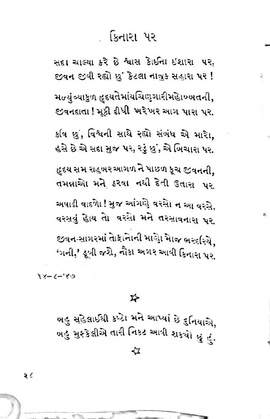 કિનારા પર
સદા ચાલ્યા કરે છે શ્વાસ કોઈના ઇશારા પર,
જીવન જીવી રહ્યો છું કેટલા નાજુક સહારા પર !
મળ્યું વ્યાકુળ હૃદય તેમાંય ચિણગારી મહોબ્બતની,
જીવનદાતા ! મૂકી દીધી ખરેખર આગ પારા પર.
કવિ છું, વિશ્વની સાથે રહ્યો સંબંધ એ મારો,
હસે છે એ સદા મુજ પર, રડું છું, એ બિચારા પર.
હૃદય સમ રાહબર આગળ ને પાછળ કૂચ જીવનની,
તમન્નાઓ મને ઠરવા નથી દેતી ઉતારા પર.
અષાઢી વાદળો ! મુજ આંગણે વરસો ન આ વરસે,
વરસવું હોય તો વરસો મને તરસાવનારા પર.
જીવન-સાગરમાં તોફાનોની માણો મોજ ભરદરિયે,
‘ગની,’ ડૂબી જશે, નૌકા અગર આવી કિનારા પર.
૧૪-૮-’૪૭
બહુ સહેલાઈથી કષ્ટો મને આપ્યાં છે દુનિયાએ,
બહુ મુશ્કેલીએ તારી નિકટ આવી શક્યો છું હું.
૩૮